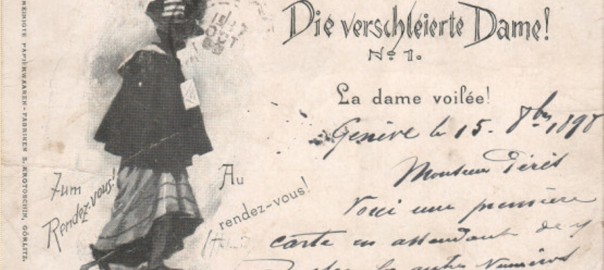 Die verschleierte Dame!
No 1.
La dame voilée!
Genève le 15. 8bre 1898
Monsieur
Voici une première
carte en attendant de
les autres numéros
Zum
Rendez-vous!
Au
rendez-vous!
OCT
VEREINIGTE PAPIERWAAREN-FABRIKEN S. KROTOSCHIN, GÖRLITZ.